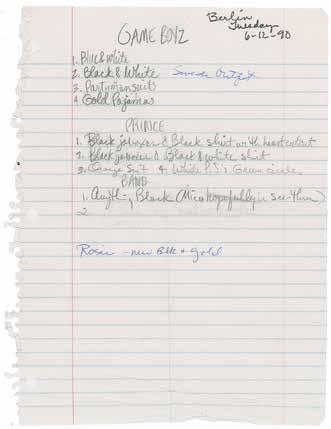 Berlin
Tuesday
6-12-90
GAME BOYZ
1. Blue & White
2. Black & White Suede Outfit
3. Partyman suits
4. Gold Pajamas
PRINCE
1. Black johnson & Black shirt with heart cutout
2. Black johnson & Black & white shirt
3. Orange Suit 4 White P.J.'s Green circles
BAND
1. Anything Black (Mico hopefully in see-thru)
2
Rosie - new Blk & Gold